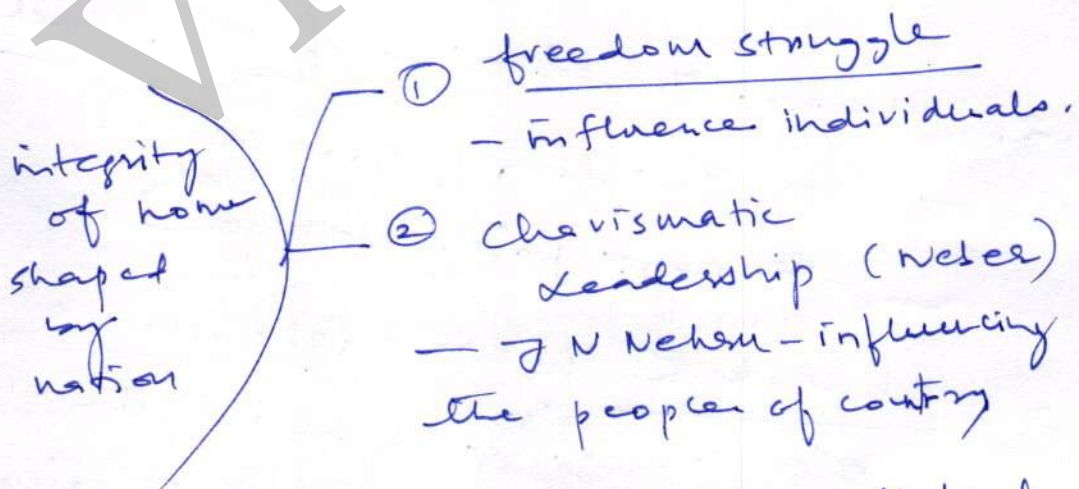 integrity
of home
shaped
by
nation
① freedom struggle
- influence individuals.
② Charismatic
Leadership (Weber)
- J N Nehru - influencing
the people of country